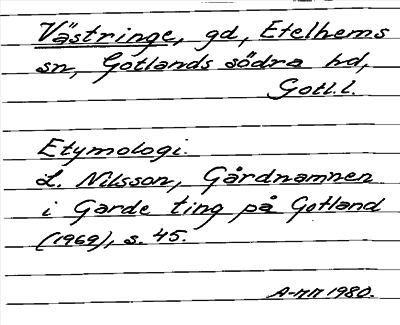 Västringe, gd, Etelhems
sn, Gotlands södra hd,
Gotl.l.
Etymologi.
L. Nilsson, Gårdnamnen
i Garde ting på Gotland
(1969), s. 45.
A-MM 1980.